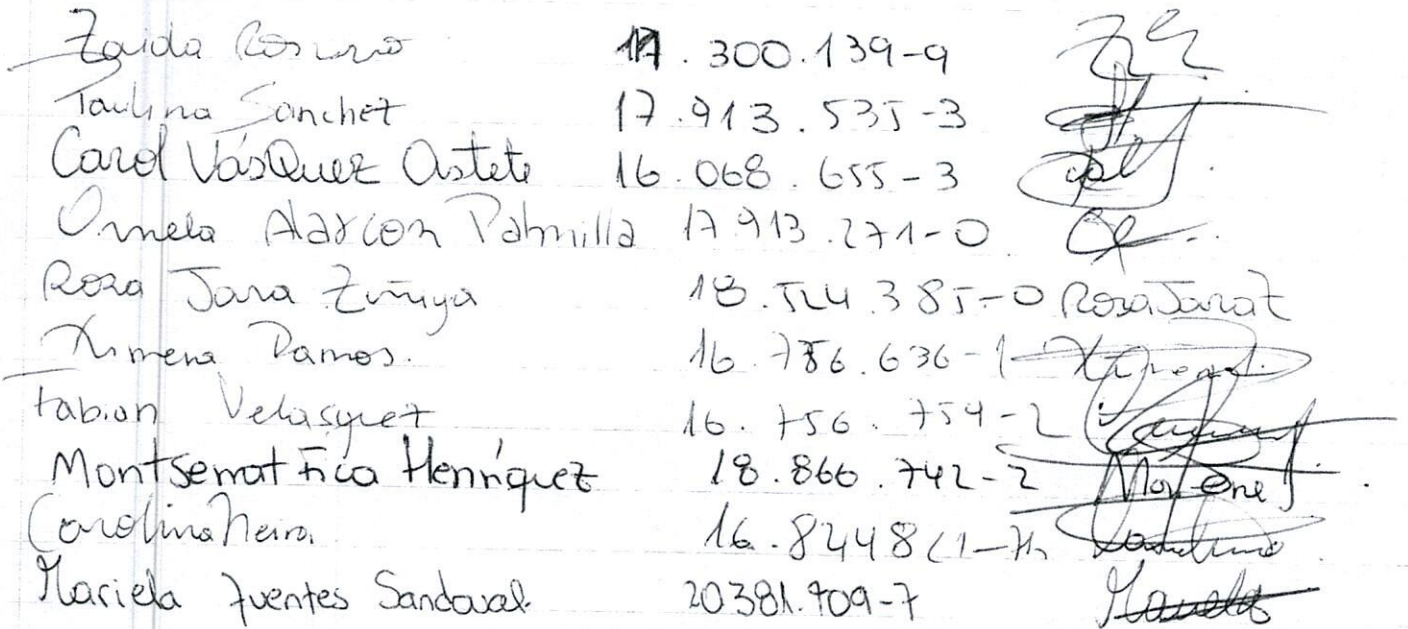 Zaida 17.300.139-9
Paulina Sanchez 17.913.535-3
Carol VásQuez Astete 16.068.655-3
Ornela Alarcon Palmilla 17.913.271-0
Rosa Jara Zuñiga 18.524.385-0 Rosa Jara Z
Ximena Ramos. 16.786.636-1 Ximena
Fabian Velasquez 16.756.754-2
Montserrat Fica Henríquez 18.866.742-2
Carolina Neira Carolina
Mariela Fuentes Sandoval 20381.709-7 Mariela